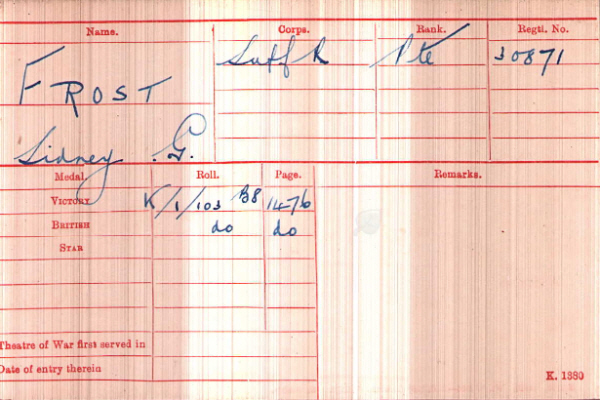 Name. Corps. Rank. Regtl. No.
FROST Suff R Pte 30871
Sidney . G.
Medal. Roll. Page. Remarks.
VICTORY K/1/103 B8 1476
BRITISH do do
STAR
Theatre of War first served in
Date of entry therein
K. 1380